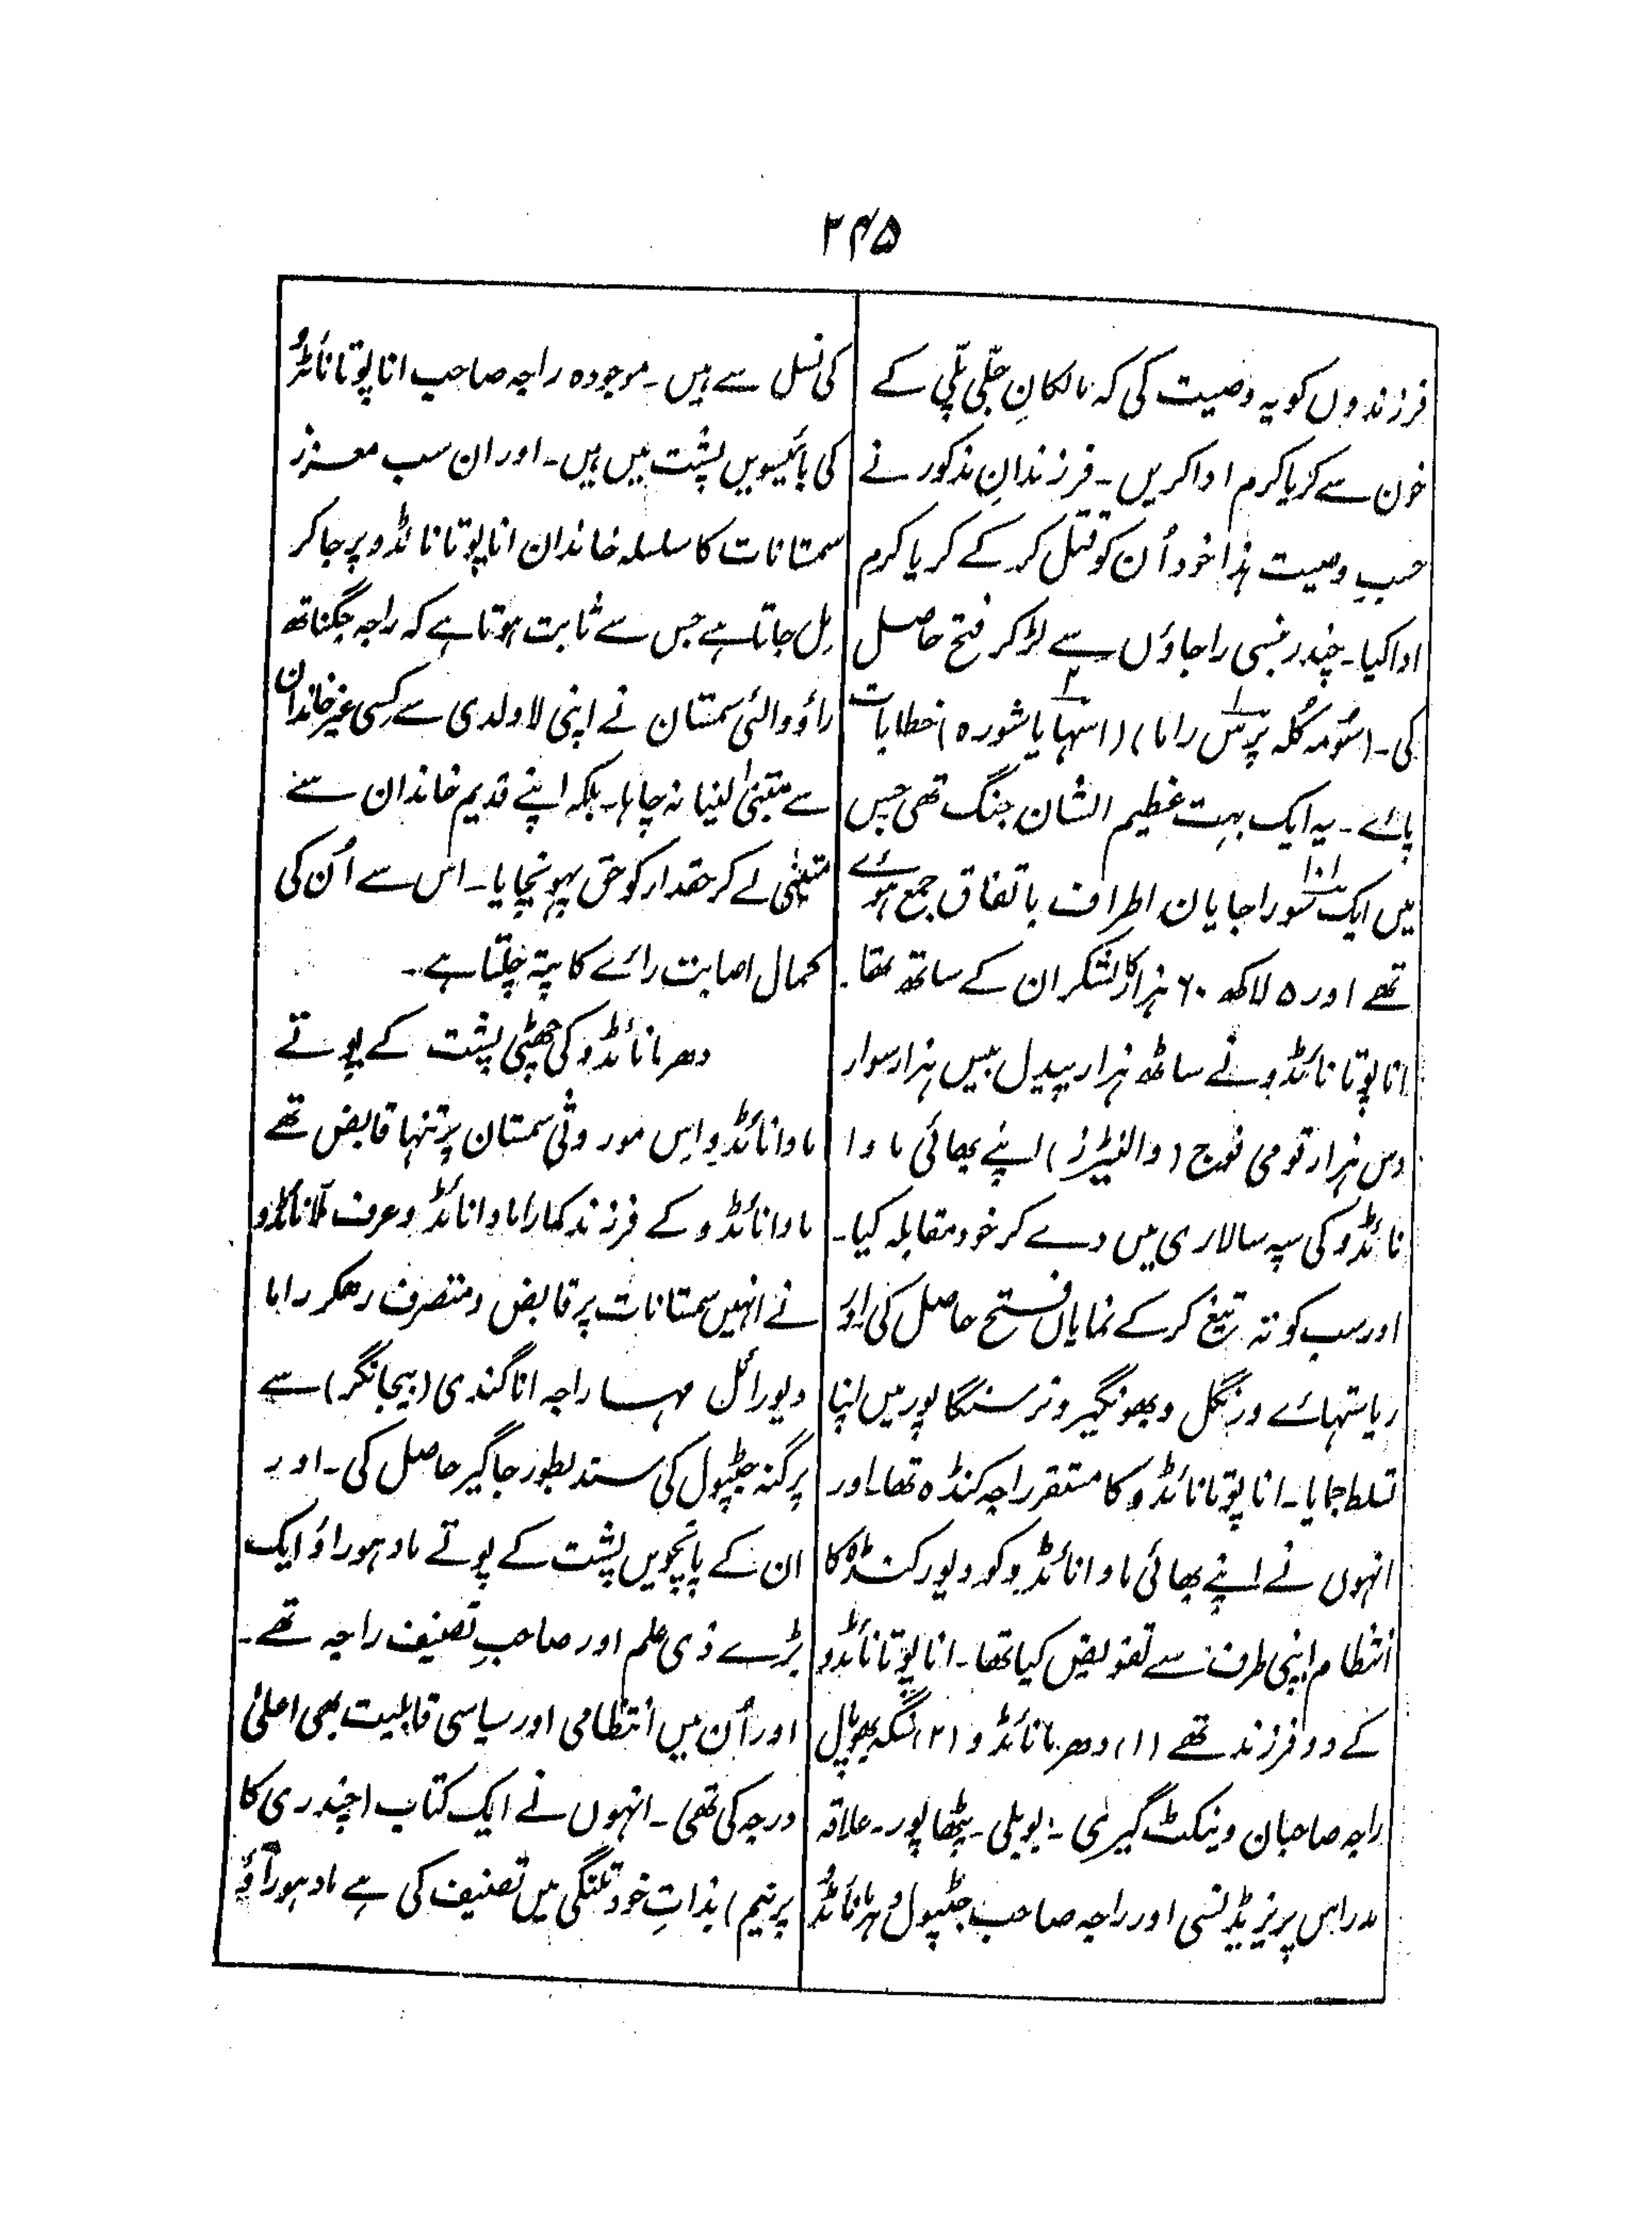 ۲۴۵
فرزندوں کو یہ وصیت کی کہ مالکانِ جلّی پلّی کے
خون سے کریا کرم ادا کریں۔ فرزندانِ مذکور نے
حسبِ وصیت ہذا خود اُن کو قتل کر کے کریا کرم
ادا کیا۔ چندر بنسی راجاؤں سے لڑ کر فتح حاصل
کی۔ (سُومہ کُلہ پرس راما) (اسہایا شورہ) خطابات
پائے۔ یہ ایک بہت عظیم الشان جنگ تھی جس
میں ایک سو راجایان اطراف باتفاق جمع ہوئے
تھے اور ۵ لاکھ ۶۰ ہزار کا لشکر ان کے ساتھ تھا۔
انا پوتا نائڈو نے ساٹھ ہزار پیدل بیس ہزار سوار
دس ہزار قومی فوج (والنٹیرز) اپنے بھائی مادا
نائڈو کی سپہ سالاری میں دے کر خود مقابلہ کیا۔
اور سب کو تہ تیغ کر کے نمایاں فتح حاصل کی اور
ریاستہائے ورنگل و بھونگیر و نرسنگا پور میں اپنا
تسلط جمایا۔ انا پوتا نائڈو کا مستقر راجہ کنڈہ تھا۔ اور
انہوں نے اپنے بھائی مادا نائڈو کو دیور کنڈہ کا
انتظام اپنی طرف سے تفویض کیا تھا۔ انا پوتا نائڈو
کے دو فرزند تھے (۱) دھرما نائڈو (۲) سنگہ بھوپال
راجہ صاحبان وینکٹ گیری۔ بوبلی۔ پٹھاپور۔ علاقہ
مدراس پریزیڈنسی اور راجہ صاحب جٹپول دھرما نائڈو
کی نسل سے ہیں۔ موجودہ راجہ صاحب انا پوتا نائڈو
کی بائیسویں پشت میں ہیں۔ اور ان سب معزز
سمتانات کا سلسلہ خاندان انا پوتا نائڈو پر جا کر
مِل جاتا ہے جس سے ثابت ہوتا ہے کہ راجہ جگناتھ
راؤ والئی سمتان نے اپنی لاولدی سے کسی غیر خاندان
سے متبنیٰ لینا نہ چاہا۔ بلکہ اپنے قدیم خاندان سے
متبنیٰ لے کر حقدار کو حق پہونچایا۔ اس سے اُن کی
کمال اصابت رائے کا پتہ چلتا ہے۔
دھرما نائڈو کی چھٹی پشت کے پوتے
مادا نائڈو اس موروثی سمتان پر تنہا قابض تھے
مادا نائڈو کے فرزند کمارا مادا نائڈو عرف ملا نائڈو
نے انہیں سمتانات پر قابض و متصرف رھکر راما
دیورائل مہاراجہ اناگندی (بیجانگر) سے
پرگنہ جٹپول کی سند بطور جاگیر حاصل کی۔ اور
ان کے پانچویں پشت کے پوتے مادہوراؤ ایک
بڑے ذی علم اور صاحبِ تصنیف راجہ تھے۔
اور اُن میں انتظامی اور سیاسی قابلیت بھی اعلیٰ
درجہ کی تھی۔ انہوں نے ایک کتاب (چندری کا
پرنیم) بذاتِ خود تلنگی میں تصنیف کی ہے مادہوراؤ